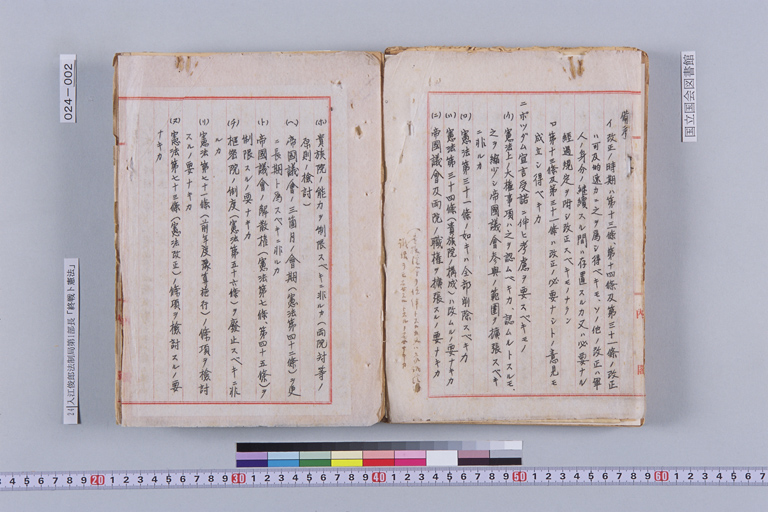 備考
イ 改正ノ時期ハ第十二條、第十四條及第三十一條ノ改正
ハ可及的速カニ之ヲ為シ得ベキモ、ソノ他ノ改正ハ軍
人ノ身分ノ継續スル間ハ存置スルカ又ハ必要ナル
経過規定ヲ附シ改正スベキモノナラン
ロ 第十二條及第三十一條ハ改正ノ必要ナシトノ意見モ
成立シ得ベキカ
ニ ポツダム宣言受諾ニ伴ヒ考慮ヲ要スベキモノ
(イ) 憲法上ノ大權事項ハ之ヲ認ムベキカ、認ムルトスルモ、
之ヲ縮少シ帝國議會参與ノ範圍ヲ擴張スベキ
ニ非ルカ
(ロ) 憲法第三十一條ノ如キハ全部削除スベキカ
(ハ) 憲法第三十四條(貴族院ノ構成)ハ改ムルノ要ナキカ
(ニ) 帝國議會及両院ノ職權ヲ擴張スルノ要ナキカ
(ホ) 貴族院ノ能力ヲ制限スベキニ非ルカ(両院対等ノ
原則ノ検討)
(ヘ) 帝國議會ノ三箇月ノ會期(憲法第四十二條)ヲ更
ニ長期ト為スベキニ非ルカ
(ト) 帝國議會ノ解散權(憲法第七條、第四十五條)ヲ
制限スルノ要ナキカ
(チ) 枢密院ノ制度(憲法第五十六條)ヲ廢止スベキニ非
ルカ
(リ) 憲法第七十一條(前年度豫算施行)ノ條項ヲ検討
スルノ要ナキカ
(ヌ) 憲法第七十三條(憲法改正)ノ條項ヲ検討スルノ要
ナキカ
内閣
024-002
国立国会図書館
24 入江俊郎法制局第1部長「終戦ト憲法」